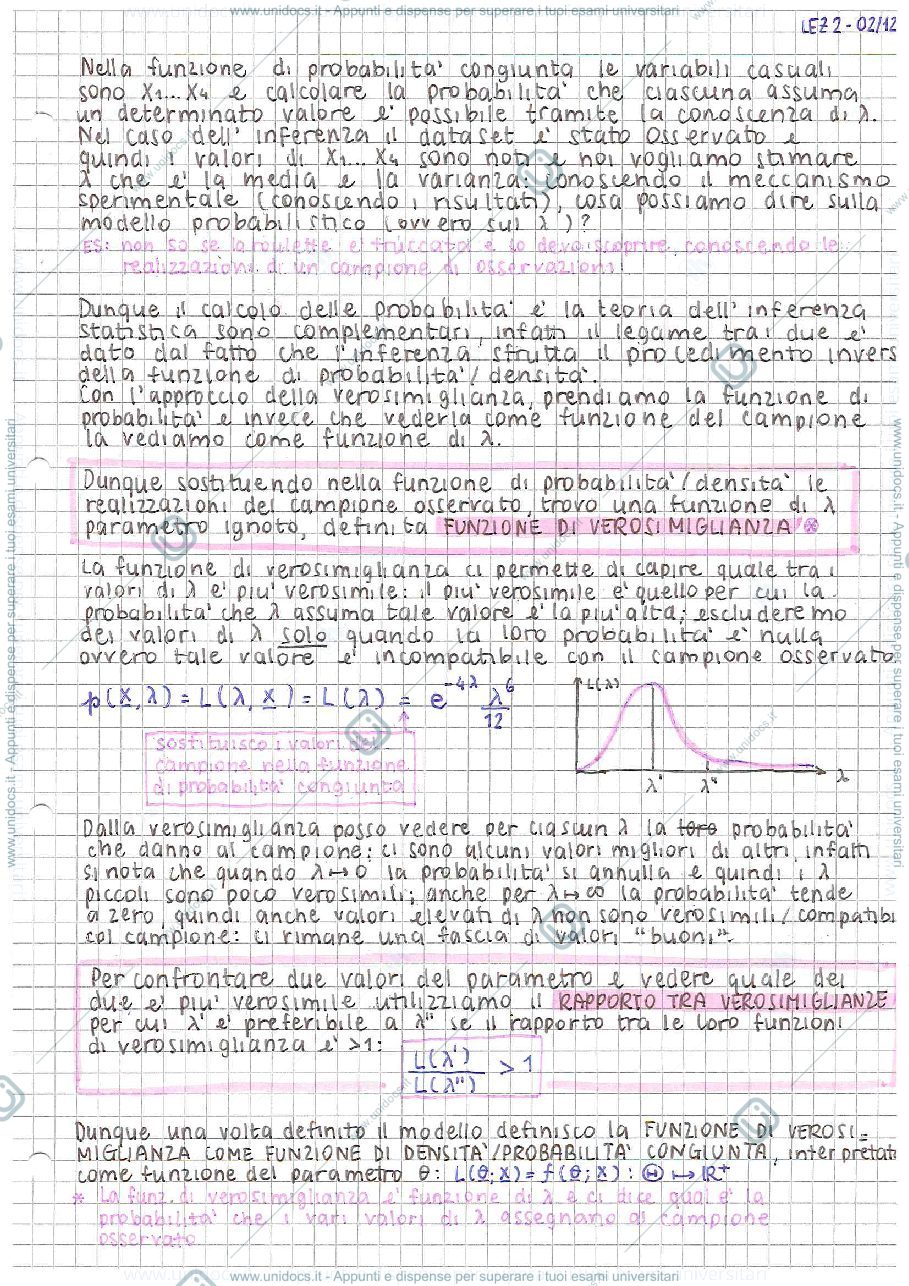 www.unidocs.it - Appunti e dispense per superare i tuoi esami universitari
LEZ 2 - 02/12
Nella funzione di probabilita' congiunta le variabili casuali
sono X1... X4 e calcolare la probabilita' che ciascuna assuma
un determinato valore e' possibile tramite la conoscenza di λ.
Nel caso dell' inferenza il dataset e' stato osservato e
quindi i valori di X1... X4 sono noti e noi vogliamo stimare
λ che e' la media e la varianza: conoscendo il meccanismo
sperimentale (conoscendo i risultati), cosa possiamo dire sulla
modello probabilistico (ovvero sui λ)?
ES: non so se la roulette e' truccata e lo devo scoprire conoscendo le
realizzazioni di un campione di osservazioni!
Dunque il calcolo delle probabilita' e' la teoria dell' inferenza
statistica sono complementari, infatti il legame tra i due e'
dato dal fatto che l'inferenza sfrutta il procedimento invers
della funzione di probabilita'/densita'.
Con l'approccio della verosimiglianza, prendiamo la funzione di
probabilita' e invece che vederla come funzione del campione
la vediamo come funzione di λ.
Dunque sostituendo nella funzione di probabilita'/densita' le
realizzazioni del campione osservato, trovo una funzione di λ
parametro ignoto, definita FUNZIONE DI VEROSIMIGLIANZA *
La funzione di verosimiglianza ci permette di capire quale tra i
valori di λ e' piu' verosimile: il piu' verosimile e' quello per cui la
probabilita' che λ assuma tale valore e' la piu' alta; escluderemo
dei valori di λ solo quando la loro probabilita' e' nulla
ovvero tale valore e' incompatibile con il campione osservato
p(x, λ) = L(λ, x) = L(λ) = e^-4λ λ^6/12
L(λ)
sostituisco i valori del
campione nella funzione
di probabilita' congiunta
λ' λ" λ
Dalla verosimiglianza posso vedere per ciascun λ la loro probabilita'
che danno al campione: ci sono alcuni valori migliori di altri, infatti
si nota che quando λ→0 la probabilita' si annulla e quindi i λ
piccoli sono poco verosimili; anche per λ→∞ la probabilita' tende
a zero, quindi anche valori elevati di λ non sono verosimili/compatibi
col campione: ci rimane una fascia di valori "buoni".
Per confrontare due valori del parametro e vedere quale dei
due e' piu' verosimile utilizziamo il RAPPORTO TRA VEROSIMIGLIANZE
per cui λ' e' preferibile a λ" se il rapporto tra le loro funzioni
di verosimiglianza e' >1:
L(λ')/L(λ") > 1
Dunque una volta definito il modello definisco la FUNZIONE DI VEROSI=
MIGLIANZA COME FUNZIONE DI DENSITA'/PROBABILITA' CONGIUNTA, interpretata
come funzione del parametro θ: L(θ; x) = f(θ; x) : Θ ↦ ℝ+
* La funz. di verosimiglianza e' funzione di λ e ci dice qual e' la
probabilita' che i vari valori di λ assegnano al campione
osservato
www.unidocs.it - Appunti e dispense per superare i tuoi esami universitari
www.unidocs.it - Appunti e dispense per superare i tuoi esami universitari
www.unidocs.it - Appunti e dispense per superare i tuoi esami universitari